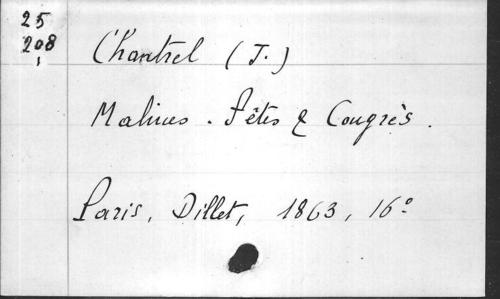 25
208
1
Chantrel (J.)
Malines. Fêtes & Congrès.
Paris, Dillet, 1863, 16°